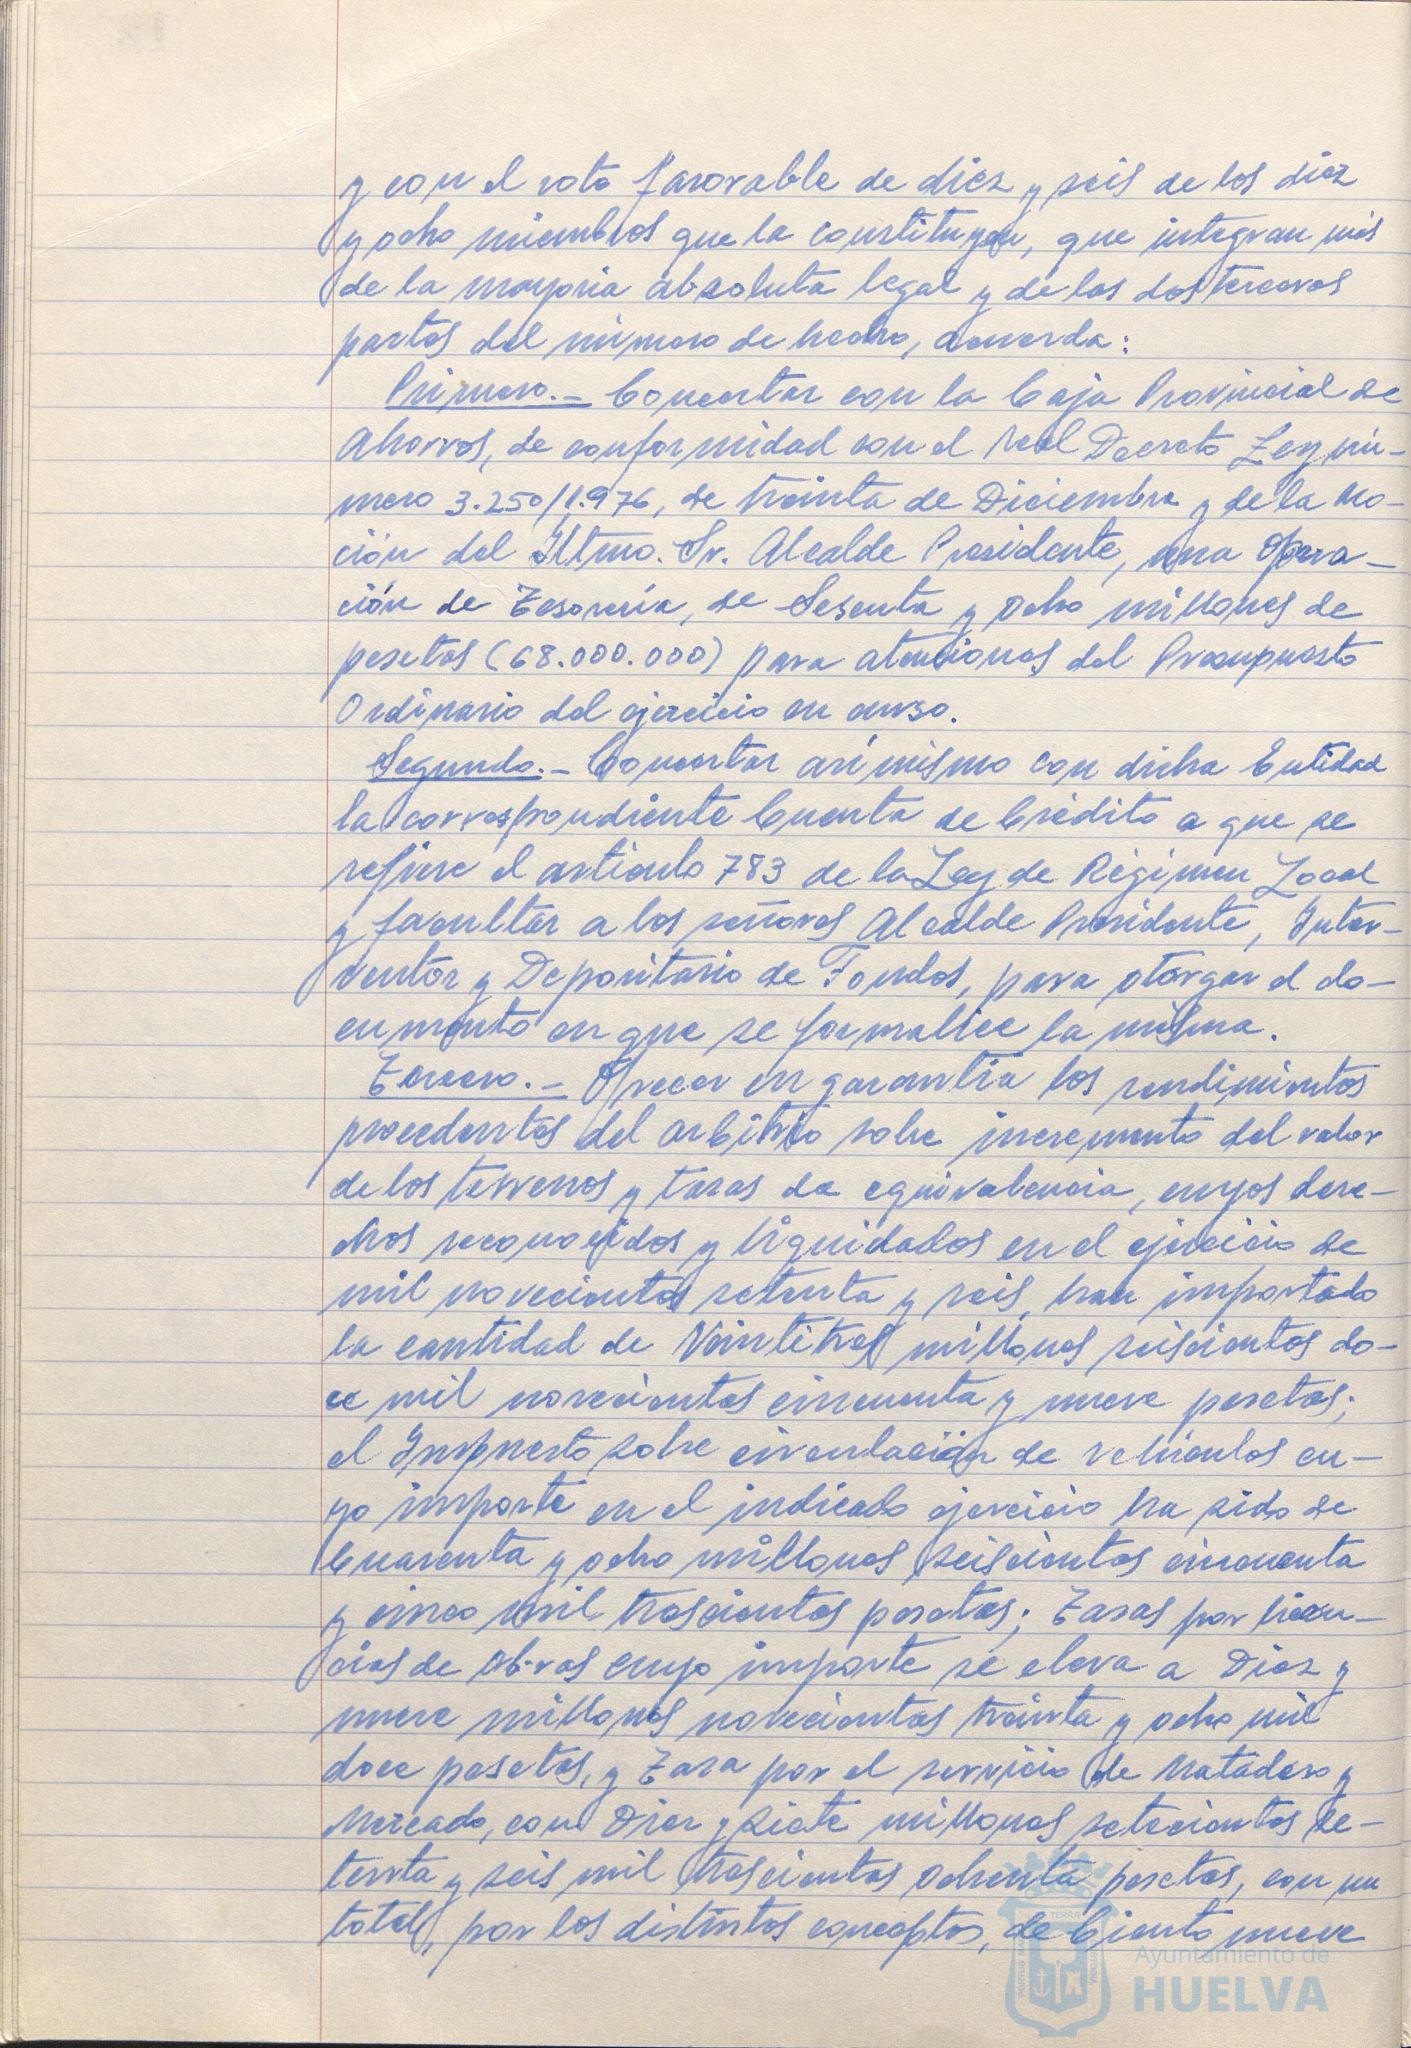 y con el voto favorable de diez y seis de los diez
y ocho miembros que la constituyen, que integran más
de la mayoria absoluta legal y de las dos terceras
partes del número de hecho, acuerda:
Primero.- Concertar con la Caja Provincial de
Ahorros, de conformidad con el Real Decreto Ley nú-
mero 3.250/1.976, de treinta de Diciembre y de la Mo-
ción del Iltmo. Sr. Alcalde Presidente, una Opera-
ción de Tesorería, de Sesenta y ocho millones de
pesetas (68.000.000) para atenciones del Presupuesto
Ordinario del ejercicio en curso.
Segundo.- Concertar asimismo con dicha Entidad
la correspondiente Cuenta de Crédito a que se
refiere el artículo 783 de la Ley de Régimen Local
y facultar a los señores Alcalde Presidente, Inter-
ventor y Depositario de Fondos, para otorgar el do-
cumento en que se formalice la misma.
Tercero.- Ofrecer en garantía los rendimientos
procedentes del arbitrio sobre incremento del valor
de los terrenos y tasas de equivalencia, cuyos dere-
chos reconocidos y liquidados en el ejercicio de
mil novecientos setenta y seis, han importado
la cantidad de Veintitres millones seiscientos do-
ce mil novecientos cincuenta y nueve pesetas;
el Impuesto sobre circulación de vehículos cu-
yo importe en el indicado ejercicio ha sido de
Cuarenta y ocho millones seiscientos cincuenta
y cinco mil trescientos pesetas; Tasas por licen-
cias de obras cuyo importe se eleva a Diez y
nueve millones novecientos treinta y ocho mil
doce pesetas, y Tasa por el servicio de Matadero y
Mercado, con Diez y siete millones setecientos se-
tenta y seis mil trescientos ochenta pesetas, con un
total, por los distintos conceptos, de Ciento nueve
Ayuntamiento de
HUELVA